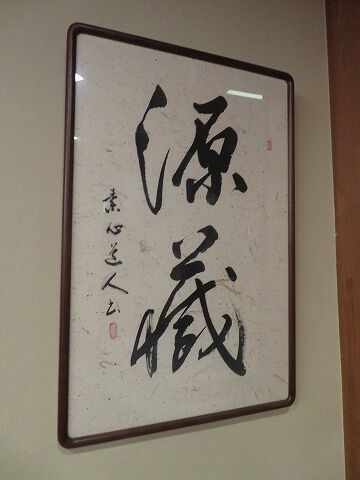 源藏
素心道人書